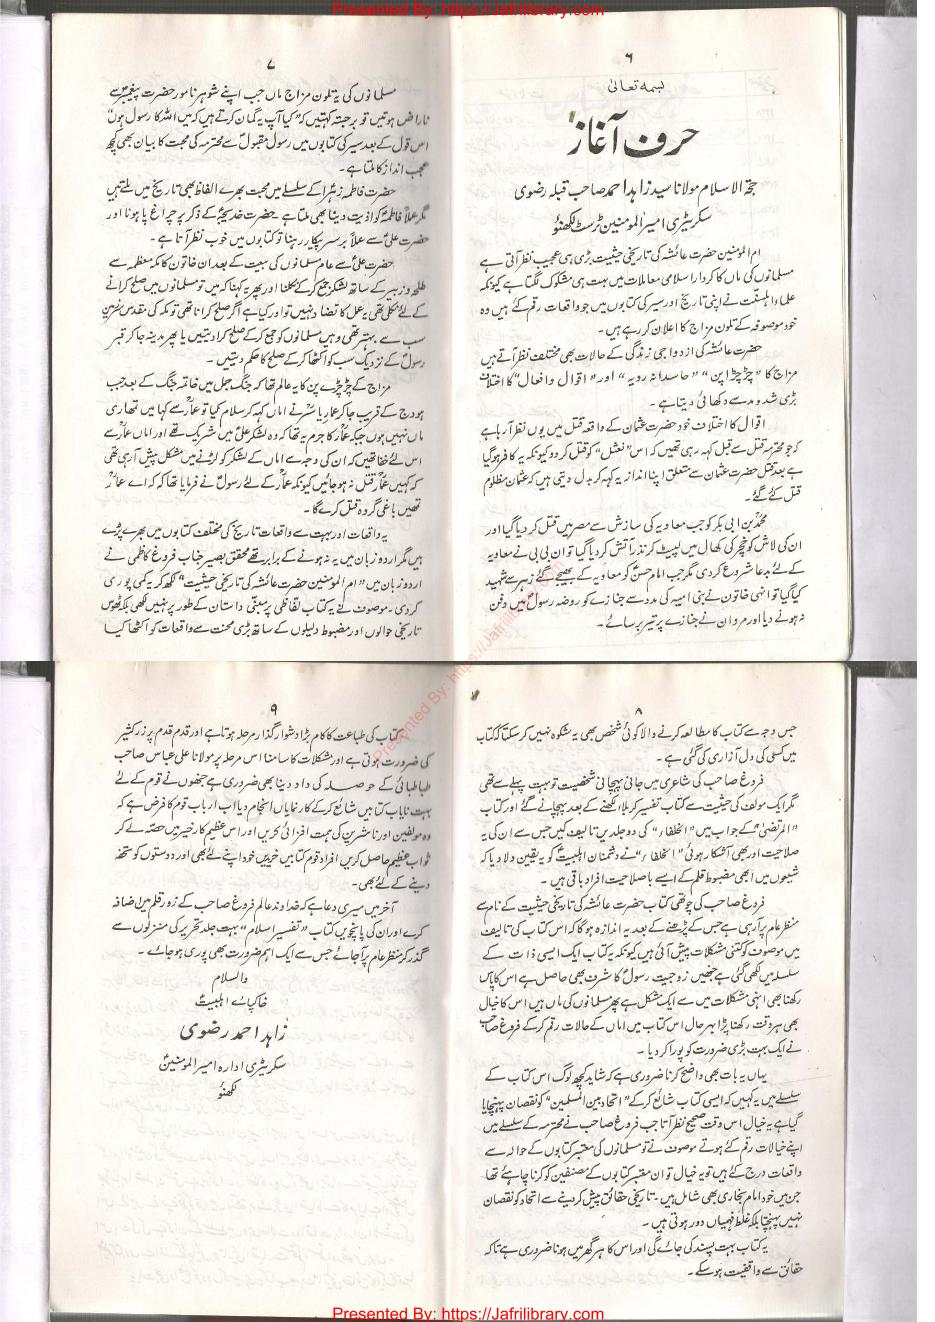 Presented By: https://Jafrilibrary.com
۶
بسمہ تعالیٰ
حرف آغاز
حجۃ الاسلام مولانا سید زاہد احمد صاحب قبلہ رضوی
سکریٹری امیر المومنین ٹرسٹ لکھنؤ
ام المومنین حضرت عائشہ کی تاریخی حیثیت بڑی ہی عجیب نظر آتی ہے
مسلمانوں کی ماں کا کردار اسلامی معاملات میں بہت ہی مشکوک لگتا ہے کیونکہ
علماء اہلسنت نے اپنی تاریخ اور سیر کی کتابوں میں جو واقعات رقم کئے ہیں وہ
خود موصوفہ کے تلون مزاج کا اعلان کر رہے ہیں۔
حضرت عائشہ کی ازدواجی زندگی کے حالات بھی مختلف نظر آتے ہیں
مزاج کا "چڑچڑا پن" "حاسدانہ رویہ" اور "اقوال وافعال" کا اختلاف
بڑی شد و مد سے دکھائی دیتا ہے۔
اقوال کا اختلاف خود حضرت عثمان کے واقعہ قتل میں یوں نظر آ رہا ہے
کہ جو محترمہ قتل سے قبل کہہ رہی تھیں کہ اس "نعثل" کو قتل کر دو کیونکہ یہ کافر ہو گیا
ہے بعد قتل حضرت عثمان سے متعلق اپنا انداز یہ کہہ کر بدل دیتی ہیں کہ عثمان مظلوم
قتل کئے گئے۔
محمد بن ابی بکر کو جب معاویہ کی سازش سے مصر میں قتل کر دیا گیا اور
ان کی لاش کو خچر کی کھال میں لپیٹ کر نذر آتش کر دیا گیا تو ان بی بی نے معاویہ
کے لئے بددعا شروع کر دی مگر جب امام حسنؑ کو معاویہ کے بھیجے گئے زہر سے شہید
کیا گیا تو انہی خاتون نے بنی امیہ کی مدد سے جنازے کو روضہ رسولؐ میں دفن
نہ ہونے دیا اور مروان نے جنازے پر تیر برسائے۔
۷
مسلمانوں کی یہ تلون مزاج ماں جب اپنے شوہر نامور حضرت پیغمبرؐ سے
ناراض ہوتیں تو برجستہ کہتیں کہ "کیا آپ یہ گمان کرتے ہیں کہ میں اللہ کا رسول ہوں"
اس قول کے بعد سیر کی کتابوں میں رسول مقبولؐ سے محترمہ کی محبت کا بیان بھی کچھ
عجب انداز کا ملتا ہے۔
حضرت فاطمہ زہراؑ کے سلسلے میں محبت بھرے الفاظ بھی تاریخ میں ملتے ہیں
مگر عملاً فاطمہؑ کو اذیت دینا بھی ملتا ہے حضرت خدیجہؑ کے ذکر پر چراغ پا ہونا اور
حضرت علیؑ سے عملاً برسرپیکار رہنا تو کتابوں میں خوب نظر آتا ہے۔
حضرت علیؑ سے عام مسلمانوں کی بیعت کے بعد ان خاتون کا مکہ معظمہ سے
طلحہ و زبیر کے ساتھ لشکر جمع کر کے نکلنا اور پھر یہ کہنا کہ میں تو مسلمانوں میں صلح کرانے
کے لئے نکلی تھی یہ عمل کا تضاد نہیں تو اور کیا ہے اگر صلح کرانا تھی تو مکہ کی مقدس سرزمین
سب سے بہتر تھی وہیں مسلمانوں کو جمع کر کے صلح کرا دیتیں یا پھر مدینہ جا کر قبر
رسولؐ کے نزدیک سب کو اکٹھا کر کے صلح کا حکم دیتیں۔
مزاج کے چڑچڑے پن کا یہ عالم تھا کہ جنگ جمل میں خاتمہ جنگ کے بعد جب
ہودج کے قریب جا کر عمار یاسرؓ نے اماں کہہ کر سلام کیا تو عمار سے کہا میں تمہاری
ماں نہیں ہوں جبکہ عمار کا جرم یہ تھا کہ وہ لشکر علیؑ میں شریک تھے اور اماں عمار سے
اس لئے خفا تھیں کہ ان کی وجہ سے اماں کے لشکر کو لڑنے میں مشکل پیش آ رہی تھی
کہ کہیں عمار قتل نہ ہو جائیں کیونکہ عمار کے لئے رسولؐ نے فرمایا تھا کہ اے عمار
تمھیں باغی گروہ قتل کرے گا۔
یہ واقعات اور بہت سے واقعات تاریخ کی مختلف کتابوں میں بھرے پڑے
ہیں مگر اردو زبان میں یہ نہ ہونے کے برابر تھے محقق بصیر جناب فروغ کاظمی نے
اردو زبان میں "ام المومنین حضرت عائشہ کی تاریخی حیثیت" لکھ کر یہ کمی پوری
کر دی۔ موصوف نے یہ کتاب لفاظی پر مبنی داستان کے طور پر نہیں لکھی بلکہ ٹھوس
تاریخی حوالوں اور مضبوط دلیلوں کے ساتھ بڑی محنت سے واقعات کو اکٹھا کیا
Presented By: https://Jafrilibrary.com
۸
جس وجہ سے کتاب کا مطالعہ کرنے والا کوئی شخص بھی یہ شکوہ نہیں کر سکتا کہ کتاب
میں کسی کی دل آزاری کی گئی ہے۔
فروغ صاحب کی شاعری میں جانی پہچانی شخصیت تو بہت پہلے سے تھی
مگر ایک مولف کی حیثیت سے کتاب تفسیر کربلا لکھنے کے بعد پہچانے گئے اور کتاب
"المرتضیٰ" کے جواب میں "الخلفاء" کی دو جلدیں تالیف کیں جس سے ان کی یہ
صلاحیت اور بھی آشکار ہوئی "الخلفاء" نے دشمنان اہلبیتؑ کو یہ یقین دلا دیا کہ
شیعوں میں ابھی مضبوط قلم کے ایسے باصلاحیت افراد باقی ہیں۔
فروغ صاحب کی چوتھی کتاب حضرت عائشہ کی تاریخی حیثیت کے نام سے
منظر عام پر آ رہی ہے جس کے پڑھنے کے بعد یہ اندازہ ہوگا کہ اس کتاب کی تالیف
میں موصوف کو کتنی مشکلات پیش آئی ہیں کیونکہ یہ کتاب ایک ایسی ذات کے
سلسلہ میں لکھی گئی ہے جنھیں زوجیت رسولؐ کا شرف بھی حاصل ہے اس کا پاس
رکھنا بھی انہی مشکلات میں سے ایک مشکل ہے پھر مسلمانوں کی ماں ہیں اس کا خیال
بھی ہر وقت رکھنا پڑا بہرحال اس کتاب میں اماں کے حالات رقم کر کے فروغ صاحب
نے ایک بہت بڑی ضرورت کو پورا کر دیا۔
یہاں یہ بات بھی واضح کرنا ضروری ہے کہ شاید کچھ لوگ اس کتاب کے
سلسلے میں یہ کہیں کہ ایسی کتاب شائع کر کے "اتحاد بین المسلمین" کو نقصان پہنچایا
گیا ہے یہ خیال اس وقت صحیح نظر آتا جب فروغ صاحب نے محترمہ کے سلسلے میں
اپنے خیالات رقم کئے ہوتے موصوف نے تو مسلمانوں کی معتبر کتابوں کے حوالہ سے
واقعات درج کئے ہیں تو یہ خیال تو ان معتبر کتابوں کے مصنفین کو کرنا چاہئے تھا
جن میں خود امام بخاری بھی شامل ہیں۔ تاریخی حقائق پیش کر دینے سے اتحاد کو نقصان
نہیں پہنچتا بلکہ غلط فہمیاں دور ہوتی ہیں۔
یہ کتاب بہت پسند کی جائے گی اور اس کا ہر گھر میں ہونا ضروری ہے تاکہ
حقائق سے واقفیت ہو سکے۔
۹
کتاب کی طباعت کا کام بڑا دشوار گذار مرحلہ ہوتا ہے اور قدم قدم پر زر کثیر
کی ضرورت ہوتی ہے اور مشکلات کا سامنا اس مرحلہ پر مولانا علی عباس صاحب
طباطبائی کے حوصلہ کی داد دینا بھی ضروری ہے جنھوں نے قوم کے لئے
بہت نایاب کتابیں شائع کر کے کار نمایاں انجام دیا اب ارباب قوم کا فرض ہے کہ
وہ مولفین اور ناشرین کی ہمت افزائی کریں اور اس عظیم کار خیر میں حصہ لے کر
ثواب عظیم حاصل کریں افراد قوم کتابیں خریدیں خود اپنے لئے بھی اور دوستوں کو تحفہ
دینے کے لئے بھی۔
آخر میں میری دعا ہے کہ خداوند عالم فروغ صاحب کے زور قلم میں اضافہ
کرے اور ان کی پانچویں کتاب "تفسیر اسلام" بہت جلد تحریر کی منزلوں سے
گذر کر منظر عام پر آ جائے جس سے ایک اہم ضرورت بھی پوری ہو جائے۔
والسلام
خاکپائے اہلبیتؑ
زاہد احمد رضوی
سکریٹری ادارہ امیر المومنینؑ
لکھنؤ
Presented By: https://Jafrilibrary.com